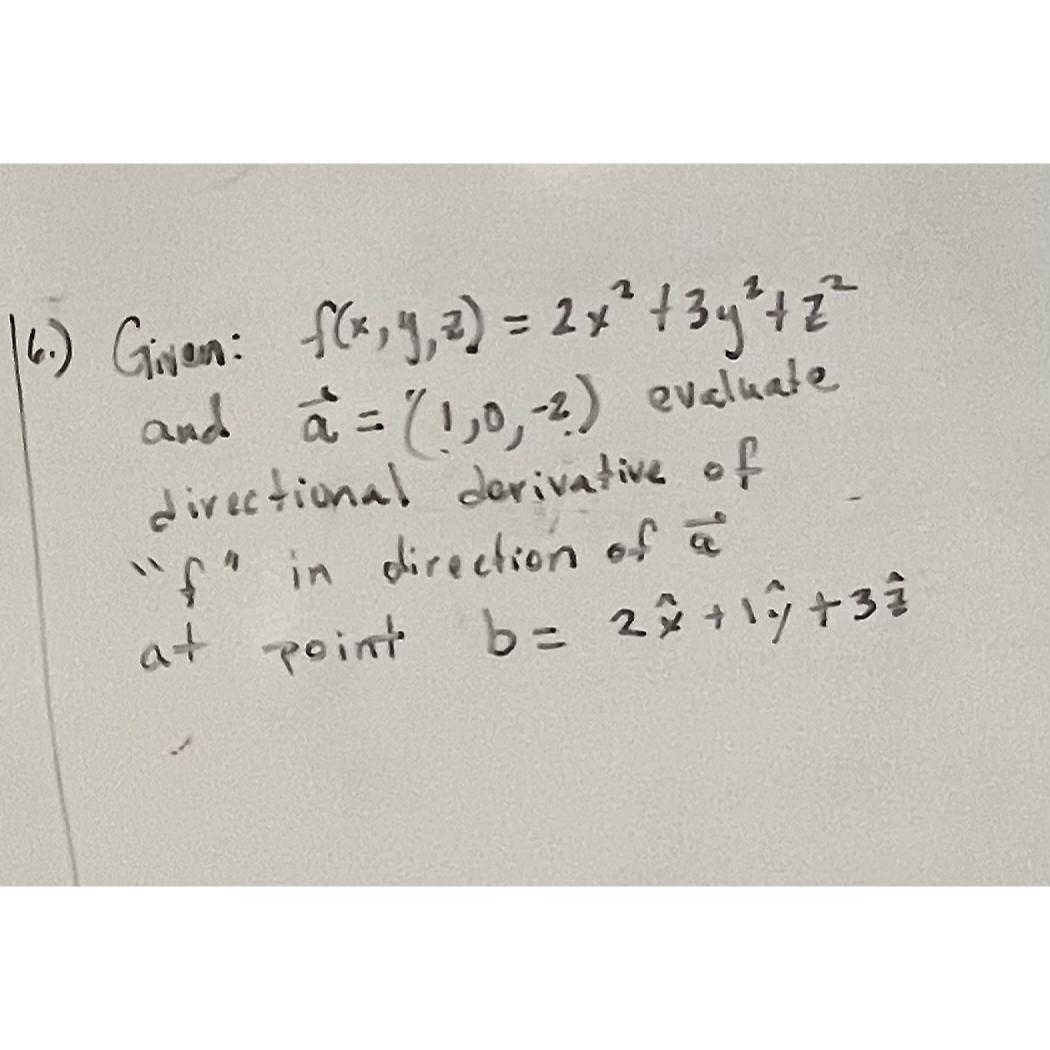 16.) Given: f(x,y,z) = 2x² + 3y² + z²
and a⃗ = (1,0,-2) evaluate
directional derivative of
"f" in direction of a⃗
at point b = 2x̂ + 1ŷ + 3ẑ